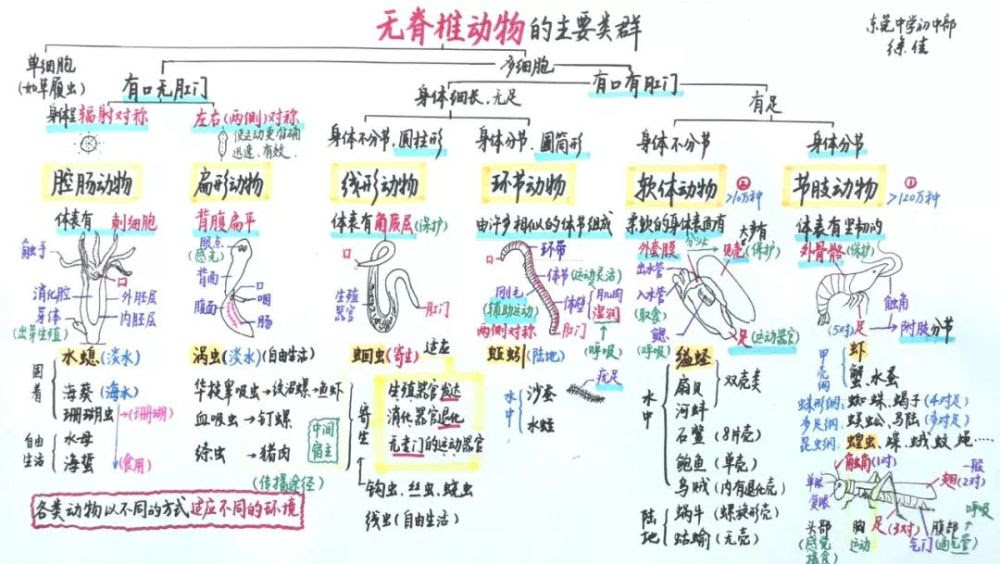 无脊椎动物的主要类群
东莞中学初中部
徐佳
单细胞
(如草履虫)
多细胞
有口无肛门
有口有肛门
身体呈辐射对称
左右(两侧)对称
使运动更准确
迅速、有效
身体细长,无足
有足
身体不分节,圆柱形
身体分节、圆筒形
身体不分节
身体分节
腔肠动物
扁形动物
线形动物
环节动物
软体动物
② >10万种
节肢动物
① >120万种
体表有刺细胞
触手
口
消化腔
外胚层
芽体
内胚层
(出芽生殖)
水螅(淡水)
固着
海葵(海水)
珊瑚虫→(珊瑚)
自由生活
水母
海蜇
(食用)
背腹扁平
眼点
(感光)
背面
口
咽
腹面
肠
涡虫(淡水)(自由生活)
华枝睾吸虫→纹沼螺→鱼虾
血吸虫→钉螺
绦虫→猪肉
中间宿主
(传播途径)
体表有角质层(保护)
口
生殖器官
肛门
蛔虫(寄生)
适应
寄生
生殖器官发达
消化器官退化
无专门的运动器官
钩虫、丝虫、蛲虫
线虫(自由生活)
由许多相似的体节组成
口
环带
体节(运动灵活)
刚毛
(辅助运动)
体壁
肌肉
湿润
(呼吸)
两侧对称
肛门
蚯蚓(陆地)
疣足
水中
沙蚕
水蛭
柔软的身体表面有
外套膜
分泌
大多有
贝壳(保护)
出水管
入水管
(取食)
鳃
(呼吸)
足(运动器官)
缢蛏
扇贝
河蚌
双壳类
水中
石鳖(8片壳)
鲍鱼(单壳)
乌贼(内有退化壳)
陆地
蜗牛(螺旋形壳)
蛞蝓(无壳)
体表有坚韧的
外骨骼(保护)
触角
(5对)足
附肢分节
甲壳纲:
虾
蟹、水蚤
蛛形纲:蜘蛛、蝎子(4对足)
多足纲:蜈蚣、马陆(多对足)
昆虫纲:蝗虫、蝶、蛾、蚊、蝇……
触角(1对)
一般
翅(2对)
单眼
复眼
头部
(感觉摄食)
胸
运动
足(3对)
腹部
气门(通气管)
呼吸
各类动物以不同的方式适应不同的环境